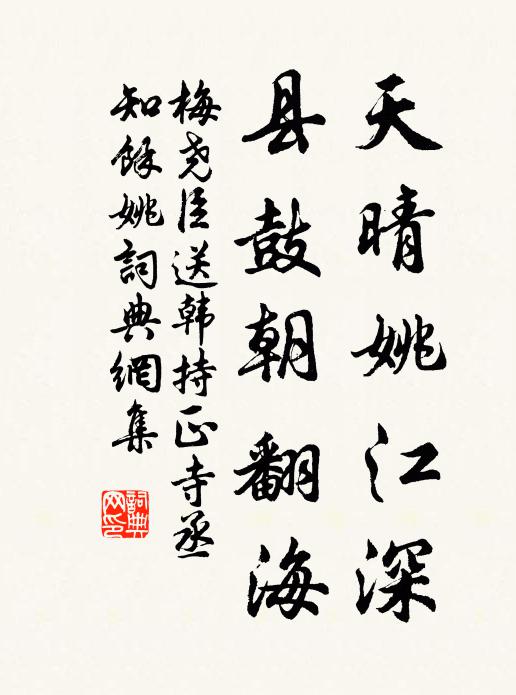 天晴姚江深
县鼓朝翻海
梅尧臣送韩持正寺丞
知餘姚詞典網集
詞典
网印